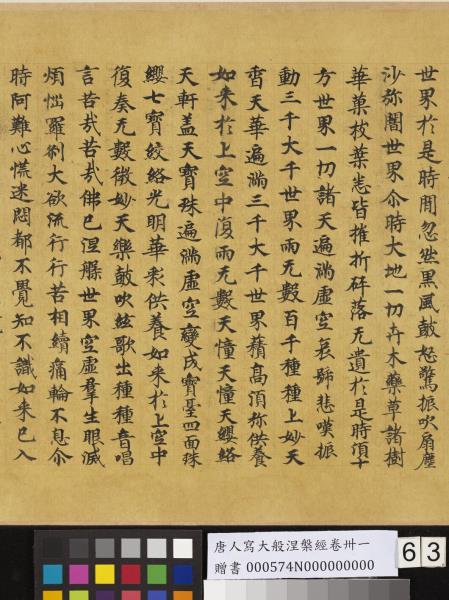 世界於是時閒忽然黑風鼓怒驚振吹扇塵
沙弥闇世界尒時大地一切卉木藥草諸樹
華菓枝葉悉皆摧折碎落无遺於是時頃十
方世界一切諸天遍滿虛空哀歸悲嘆振
動三千大千世界雨无數百千種種上妙天
香天華遍滿三千大千世界積高須弥供養
如来於上空中復雨无數天憧天憧天纓絡
天軒盖天寳珠遍滿虛空變成寳臺四面珠
纓七寳絞絡光明華彩供養如来於上空中
復奏无數微妙天樂鼓吹絃歌出種種音唱
言苦哉苦哉佛已涅槃世界空虛羣生眼滅
煩惱羅刹大欲流行行苦相續痛輪不息尒
時阿難心慌迷悶都不覺知不識如来已入
唐人寫大般涅槃經卷卅一
贈書 000574N000000000
63